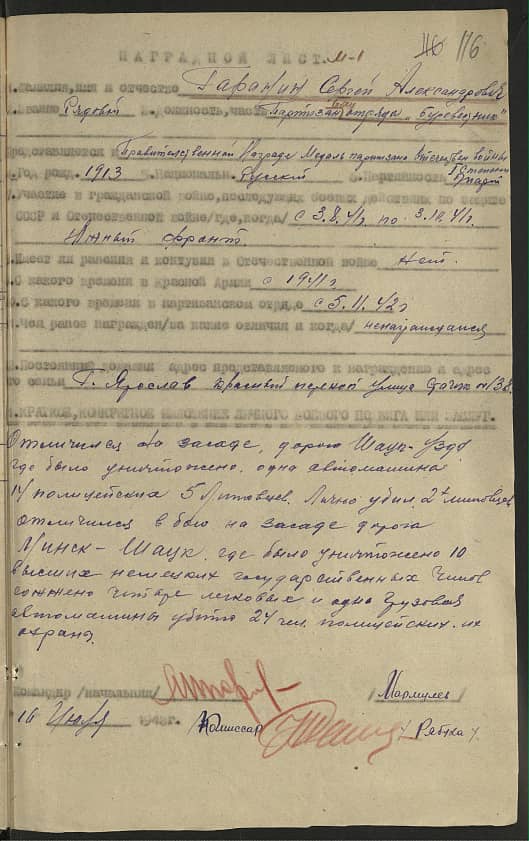 116 176
НАГРАДНОЙ ЛИСТ. М-1
1.Фамилия,имя и отчество Гаранин Сергей Александрович
2.Звание Рядовой 3.Должность,часть Партизан отряда „Буревестник"
Представляется Правительственной Награде Медаль партизана Отечествен войны
I Степени
4.Год рожд. 1913 5.Националь. Русский 6.Партийность
7.Участие в гражданской войне,последующих боевых действиях по защите
СССР и Отечественной войне/где,когда/ с 3.8.41г по 3.10.41г.
Южный фронт
8.Имеет ли ранения и контузии в Отечественной войне Нет.
9.С какого времени в Красной Армии с 1941г
10.С какого времени в партизанском отряде с 5.11.42г
11.Чем ранее награжден/за какие отличия и когда/ ненаграждался
12.Постоянный домашний адрес представляемого к награждению и адрес
его семьи Г. Ярослав Красный улица
1.КРАТКОЕ,КОНКРЕТНОЕ ИЗЛОЖЕНИЕ ЛИЧНОГО БОЕВОГО ПОДВИГА ИЛИ ЗАСЛУГ.
Отличился на засаде, дорого Шацк-Узда
где было уничтожено. одна автомашина
14 полицейских 5 Литовцев. Лично убил 2х литовцев
отличился в бою на засаде дорога
Минск-Шацк. где было уничтожено 10
высших немецких государственных чинов
сожжено четыре легковых и одна грузовая
автомашины убито 24 чел. полицейских. их
охраны.
Командир /начальник/ /Мармулев/
16 Июля 1943г. Комиссар /Рябуха/